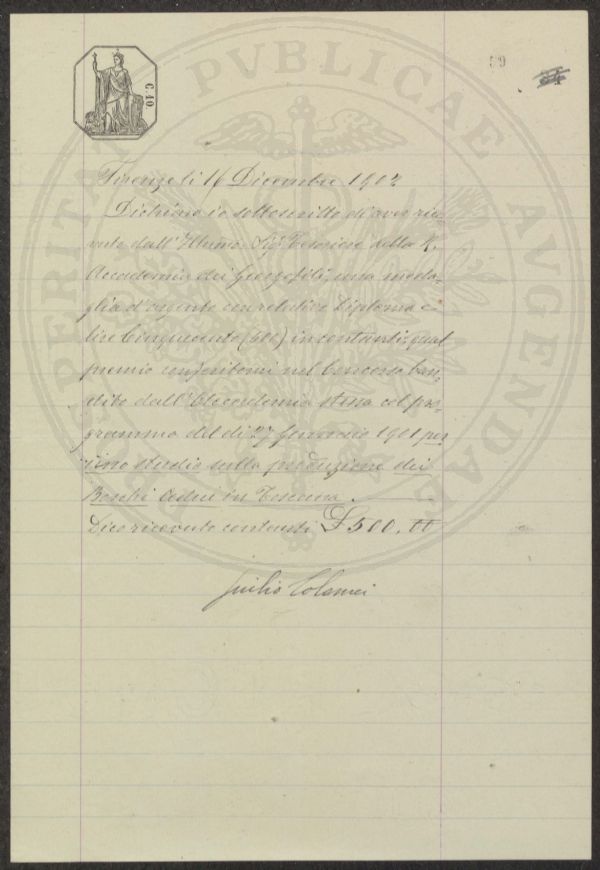 PROSPERITATI PVBLICAE AVGENDAE
C. 10.
59
Firenze li 16 Dicembre 1902
Dichiaro io sottoscritto di aver rice-
vuto dall'Illmo Sig Tesoriere della R.
Accademia dei Georgofili, una meda-
glia d'argento con relativo Diploma e
lire Cinquecento (500) in contanti, qual
premio conferitomi nel Concorso ban-
dito dall'Accademia stessa col pro-
gramma del dì 27 Gennaio 1901 per
uno studio sulla produzione dei
Boschi cedui in Toscana.
Dico ricevuto contanti £ 500,00